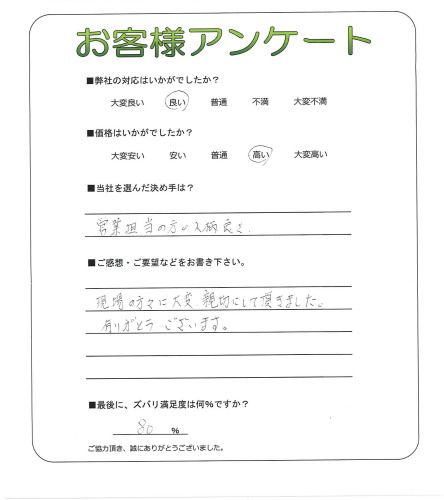 お客様アンケート
■弊社の対応はいかがでしたか?
大変良い 良い 普通 不満 大変不満
■価格はいかがでしたか?
大変安い 安い 普通 高い 大変高い
■当社を選んだ決め手は?
営業担当の方の人柄良さ.
■ご感想・ご要望などをお書き下さい。
現場の方々に大変親切にして頂きました。
有りがとうございます。
■最後に、ズバリ満足度は何%ですか?
80 %
ご協力頂き、誠にありがとうございました。